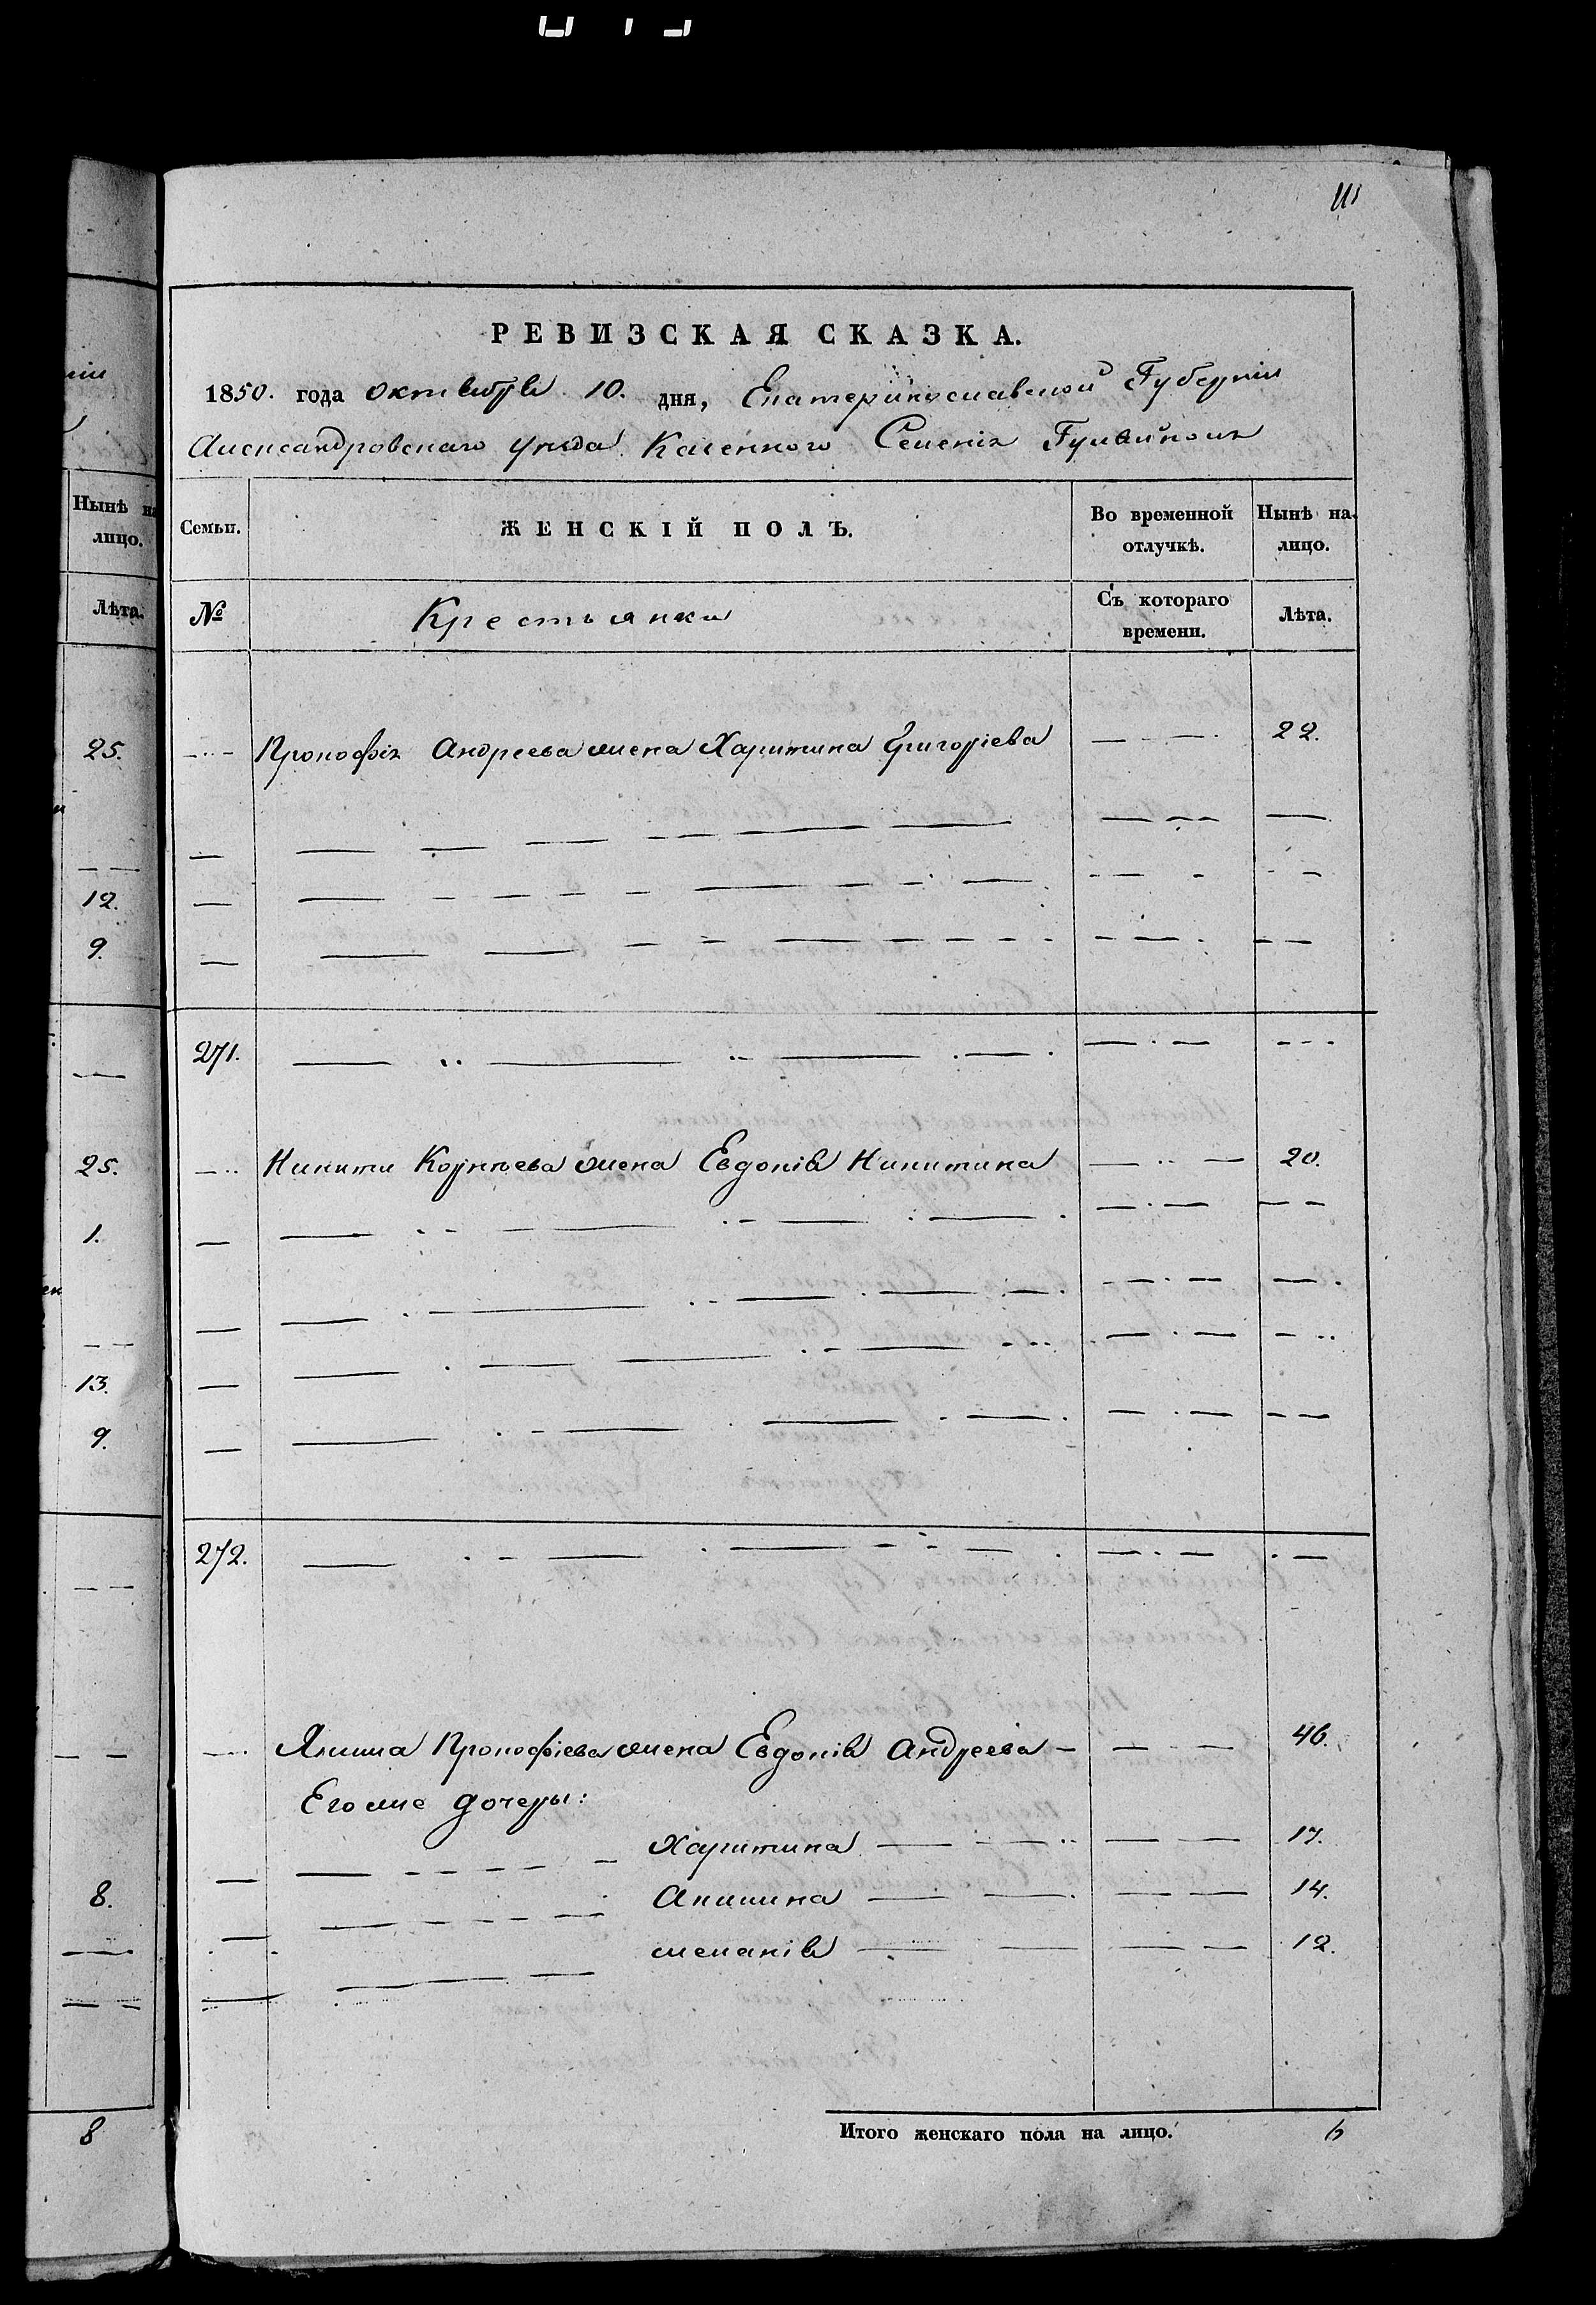 РЕВИЗСКАЯ СКАЗКА.
1850. года октября 10. дня, Екатеринославской Губерніи
Александровскаго уѣзда Казенного Селенія Гуляйполя
Семьи.
ЖЕНСКІЙ ПОЛЪ.
Во временной отлучкѣ.
Нынѣ на лицо.
№
Крестьянки
Съ котораго времени.
Лѣта.
Прокофія Андреева жена Харитина Григоріева 22.
271.
Никиты Корнѣева жена Евдокія Никитина 20.
272.
Якима Прокофіева жена Евдокія Андреева 46.
Его же дочеры:
Харитина 17.
Акилина 14.
меланія 12.
Итого женскаго пола на лицо. 6
Нынѣ на
лицо.
Лѣта.
25.
12.
9.
25.
1.
13.
9.
8.
8